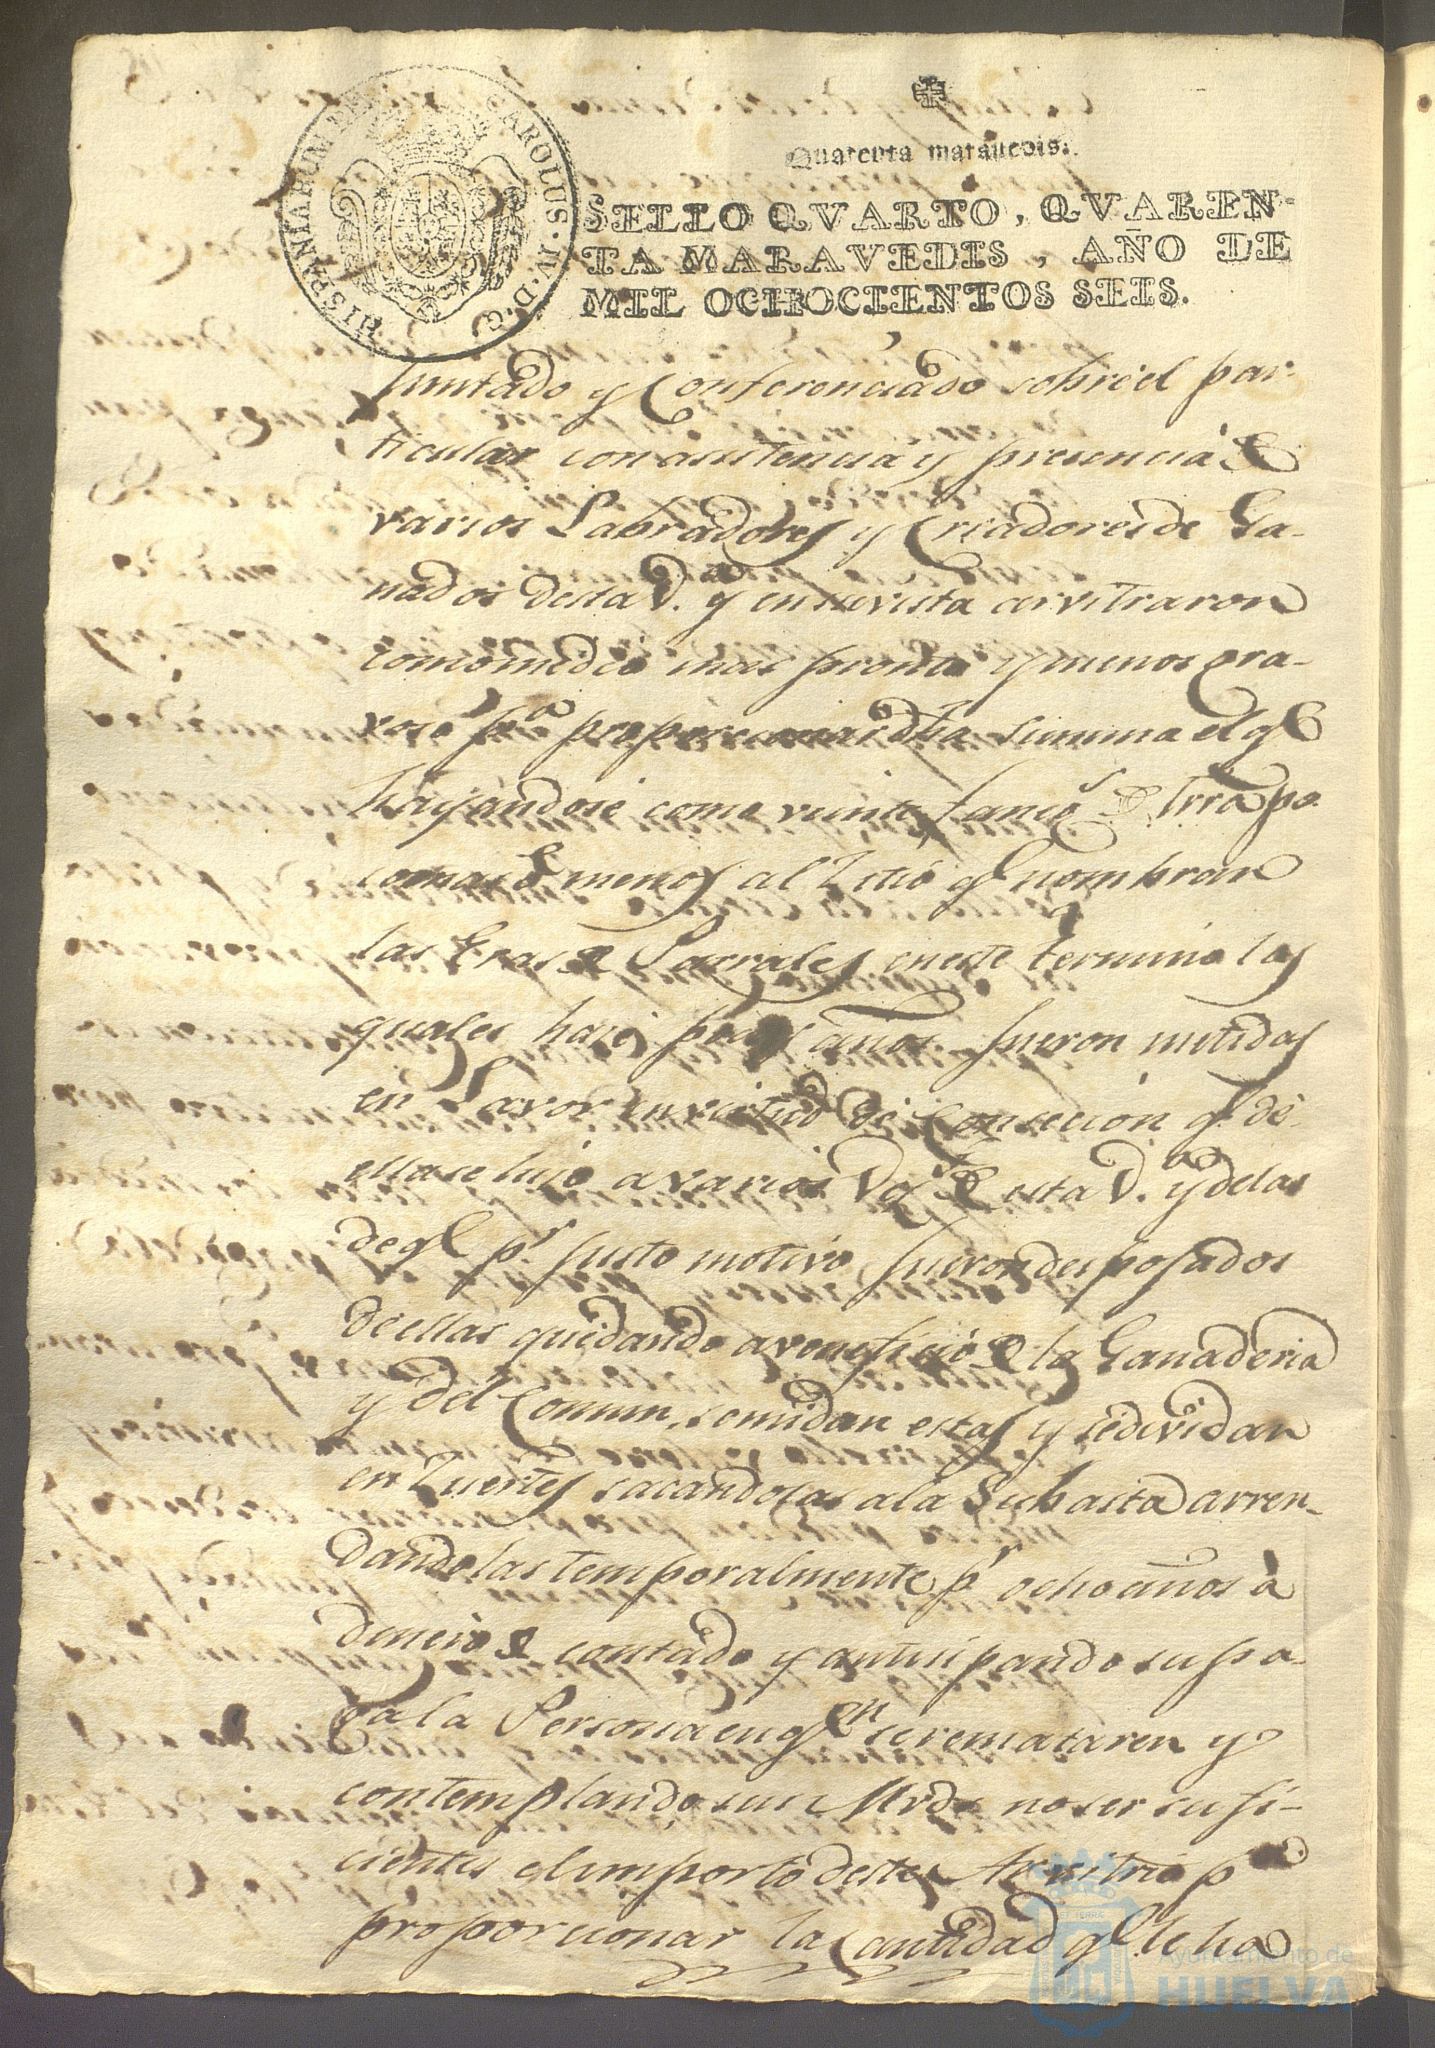 HISPANIARUM REX CAROLUS·IV·D·G·
Quarenta marauedis.
SELLO QVARTO, QVAREN-
TA MARAVEDIS, AÑO DE
MIL OCHOCIENTOS SEIS.
Juntado y Conferenciado sobre el par-
ticular con asistencia y presencia de
varios Labradores y Criadores de Ga-
nados desta V.ª y en su vista arvitraron
como medio mas pronto y menos gra-
voso p.ª proporcionar dha summa el q.e
como veinte fanes.s de trra po.
comas o menos al Zitio q.e nombran
las Eras de Parrales en este termino las
quales hase años fueron metidas
en Lavor en virtud de Consecion q.e de
ellas se hiso a varios V.os de esta V.ª y de las
de q.e p.r justo motivo fueron desposados
de ellas quedando a veneficio de la Ganaderia
y del Comun, se midan estas y se dividan
en Zuertes sacandolas a la Subasta arren-
dandolas temporalmente p.r ocho años à
dinero de contado y antisipando su pa-
ga la Persona en q.n se remataren y
contemplando sus Mrds no ser sufi-
cientes el importe deste Arvitrio p.ª
proporcionar la Cantidad q.e le ha
Ayuntamiento de
HUELVA